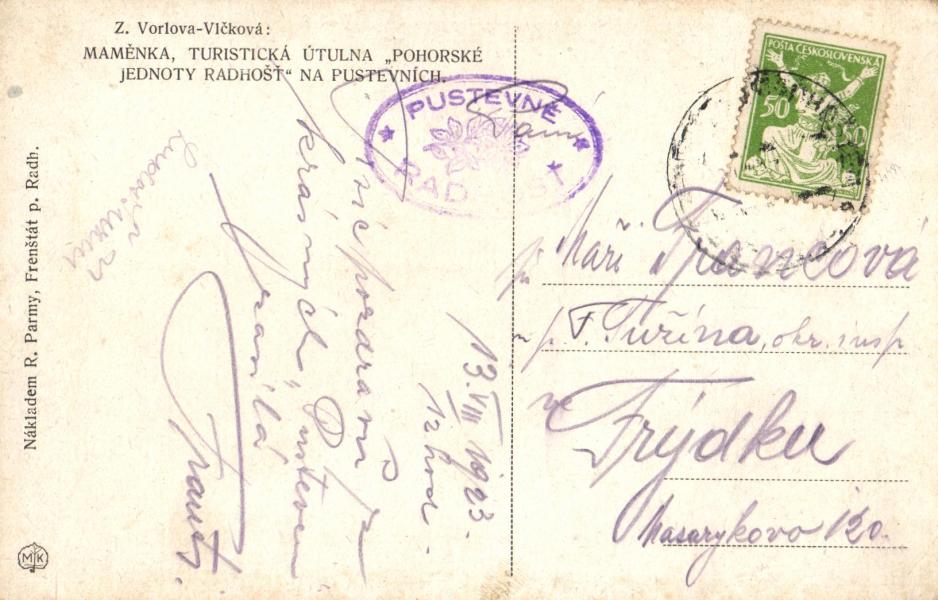 Z. Vorlova-Vlčková:
MAMĚNKA, TURISTICKÁ ÚTULNA „POHORSKÉ
JEDNOTY RADHOŠŤ“ NA PUSTEVNÍCH.
PUSTEVNĚ
RADHOŠŤ
POŠTA ČESKOSLOVENSKÁ
50 50
Nákladem R. Parmy, Frenštát p. Radh.
MK
Tisíc pozdravů ze
krásných Pusteven
13. VIII 1923.
Maří Francová
p. F. Tuřína, okr. insp
Frýdku
Masarykovo 120.